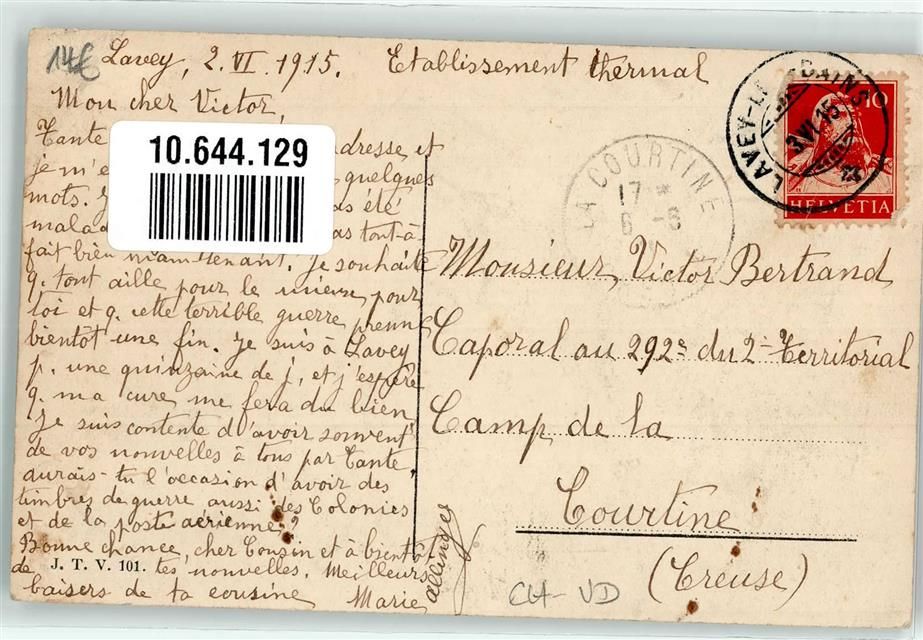 14€
Lavey, 2.VI.1915. Etablissement thermal
Mon cher Victor,
Tante adresse et
je m'e quelques
mots. as été
malad as tout-à
fait bien maintenant. Je souhaite
q. tout aille pour le mieux pour
toi et q. cette terrible guerre prenne
bientôt une fin. Je suis à Lavey
p. une quinzaine de j. et j'espère
q. ma cure me fera du bien
Je suis contente d'avoir souvent
de vos nouvelles à tous par Tante
aurais-tu l'occasion d'avoir des
timbres de guerre aussi des Colonies
et de la poste aérienne?
Bonne chance, cher Cousin et à bientôt
de tes nouvelles. Meilleurs
baisers de ta cousine Marie
J. T. V. 101.
10.644.129
LAVEY-LES-BAINS
3.VI.15
10
HELVETIA
LA COURTINE
17 *
6 -6
Monsieur Victor Bertrand
Caporal au 292e du 2e Territorial
Camp de la
Courtine
(Creuse)
CH-VD